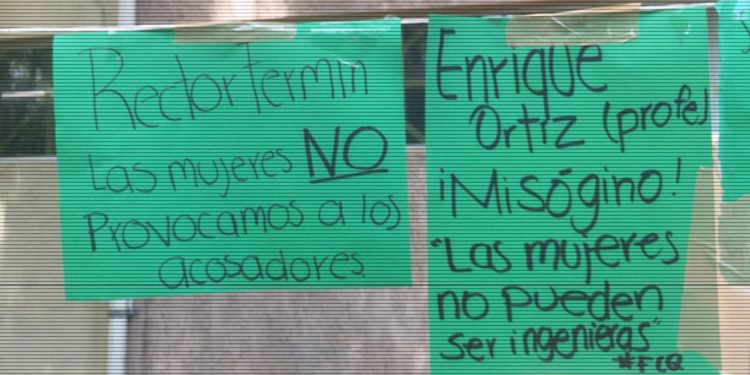 Rector Fermin
Las mujeres NO
Provocamos a los
acosadores.
Enrique
Ortiz (profe)
¡Misógino!
"Las mujeres
no pueden
ser ingenieras"
#FCQ